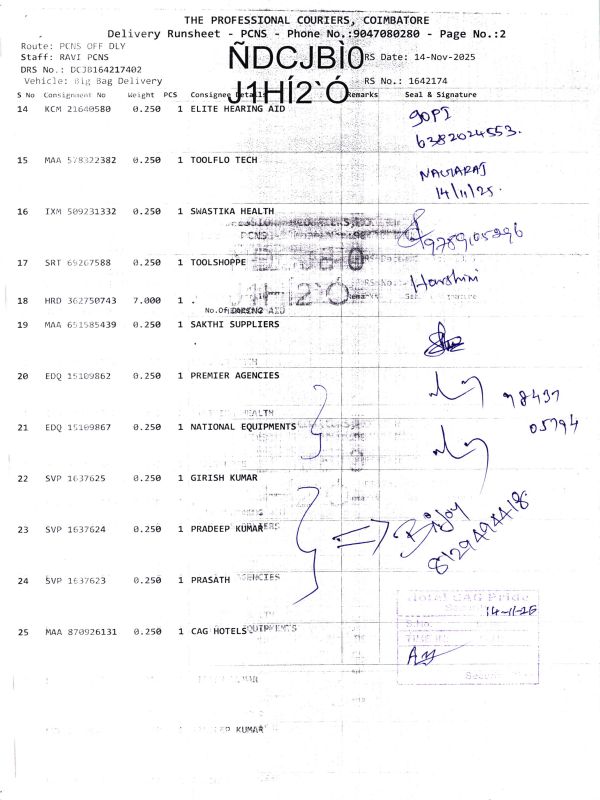 THE PROFESSIONAL COURIERS, COIMBATORE
Delivery Runsheet - PCNS - Phone No.:9047080280 - Page No.:2
Route: PCNS OFF DLY
Staff: RAVI PCNS
ÑDCJBÌ0
RS Date: 14-Nov-2025
DRS No.: DCJ8164217402
Vehicle: Big Bag Delivery
J1HÍ2`Ó
RS No.: 1642174
S No Consignment No Weight PCS Consignee Details Remarks Seal & Signature
14 KCM 21640580 0.250 1 ELITE HEARING AID
GOPI
6382024553.
15 MAA 578322382 0.250 1 TOOLFLO TECH
NAVJARAJ
14/11/25.
16 IXM 509231332 0.250 1 SWASTIKA HEALTH
9789165296
PCNS
17 SRT 69267588 0.250 1 TOOLSHOPPE
Harshini
J1HÍ2`Ó
18 HRD 362750743 7.000 1 .
19 MAA 651585439 0.250 1 SAKTHI SUPPLIERS
20 EDQ 15109862 0.250 1 PREMIER AGENCIES
98437
05794
21 EDQ 15109867 0.250 1 NATIONAL EQUIPMENTS
22 SVP 1637625 0.250 1 GIRISH KUMAR
23 SVP 1637624 0.250 1 PRADEEP KUMAR
Bijoy
8129494418
24 SVP 1637623 0.250 1 PRASATH
Hotel CAG Pride
14-11-25
S.No.
25 MAA 870926131 0.250 1 CAG HOTELS
KUMAR